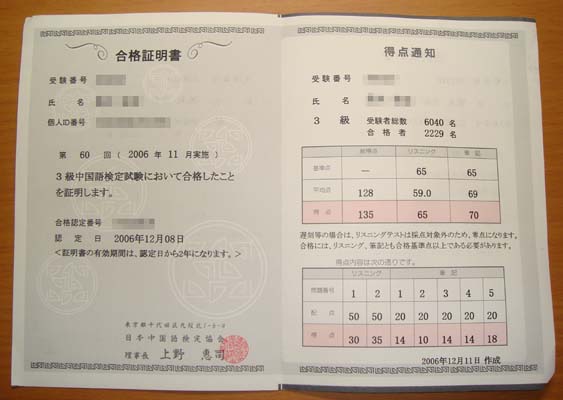 合格証明書
受験番号
氏 名
個人ID番号
第 60 回 ( 2006 年 11 月実施 )
3級中国語検定試験において合格したこと
を証明します。
合格認定番号
認 定 日 2006年12月08日
<証明書の有効期間は、認定日から2年になります。>
東京都千代田区九段北1-6-4
日本中国語検定協会
理事長 上野 惠司
得点通知
受験番号
氏 名
3 級 受験者総数 6040 名
合 格 者 2229 名
総得点 リスニング 筆記
基準点 — 65 65
平均点 128 59.0 69
得 点 135 65 70
遅刻等の場合は、リスニングテストは採点対象外のため、零点になります。
合格には、リスニング、筆記とも合格基準点以上である必要があります。
得点内容は次の通りです。
リスニング 筆記
問題番号 1 2 1 2 3 4 5
配 点 50 50 20 20 20 20 20
得 点 30 35 14 10 14 14 18
2006年12月11日 作成